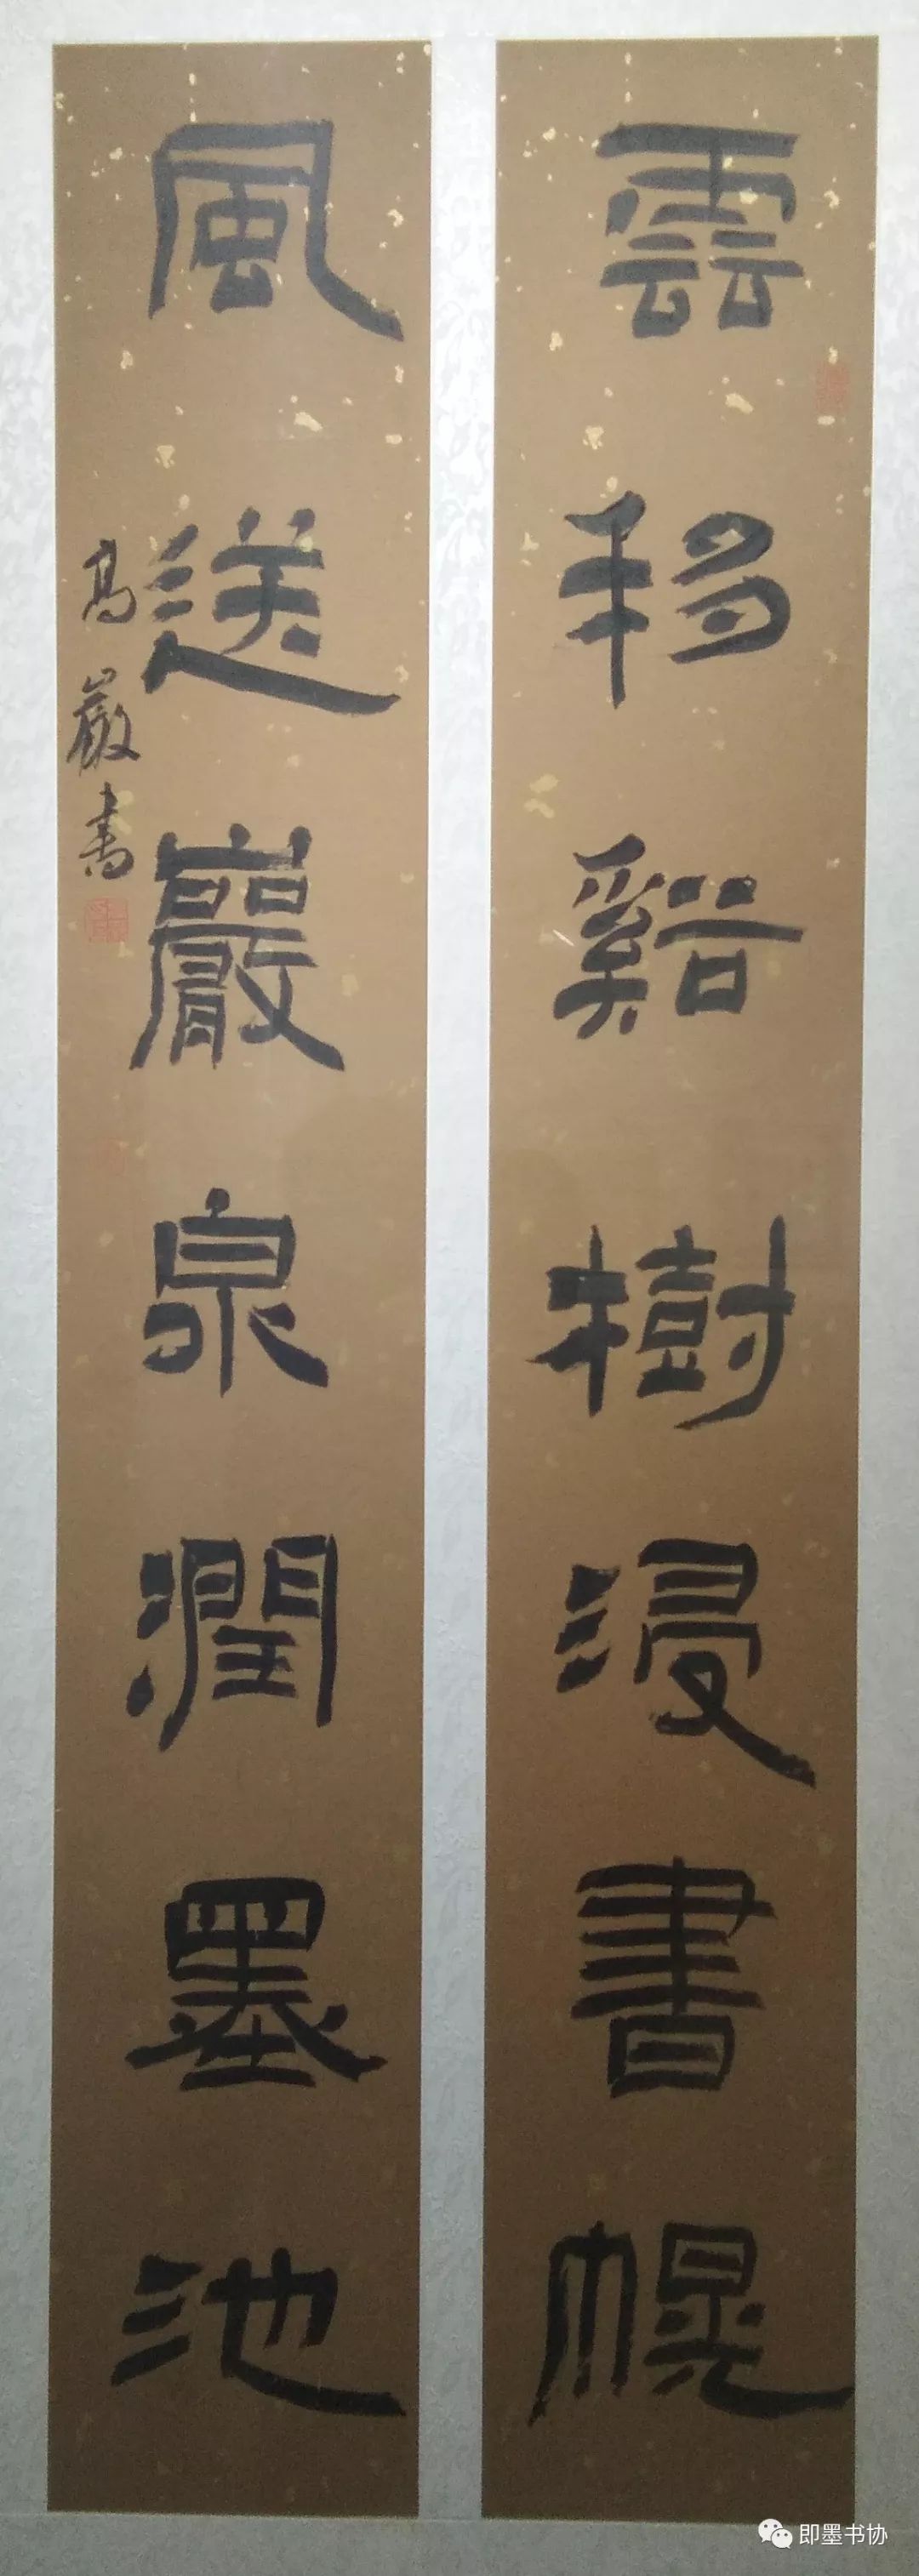 雲移谿樹浸書幌
風送巖泉潤墨池
高巖書
即墨书协